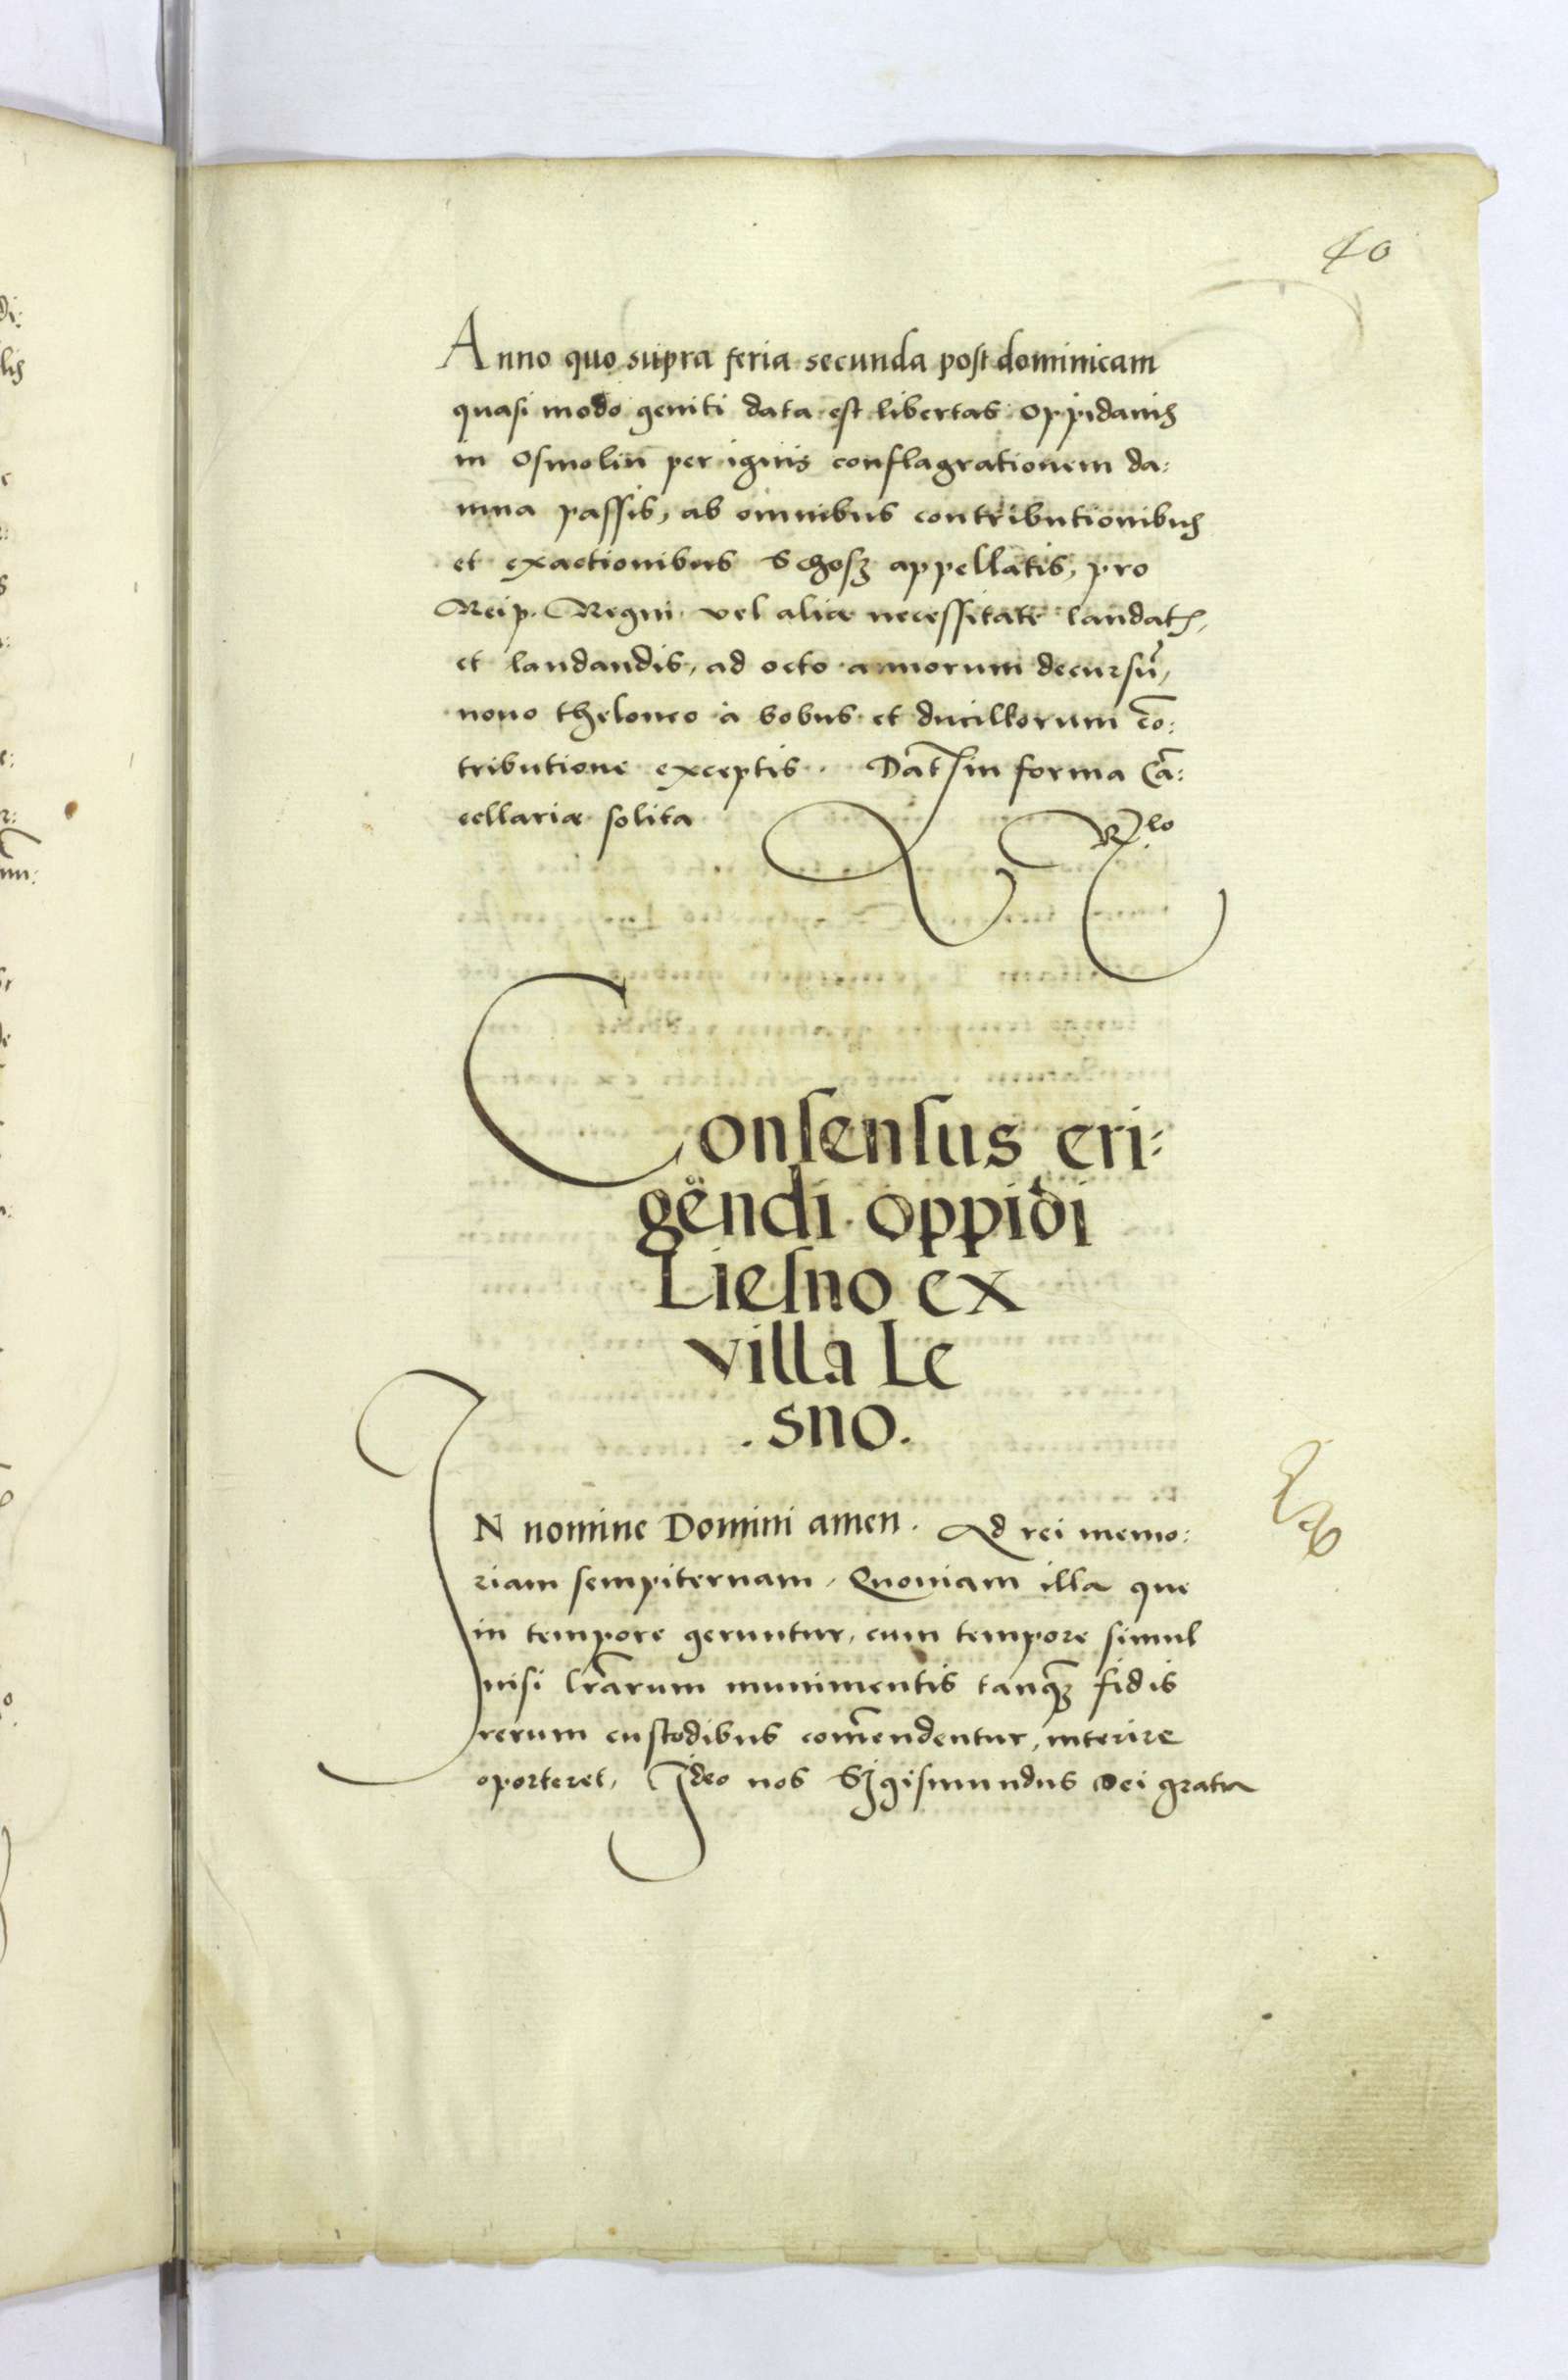 40
Anno quo supra feria secunda post dominicam
quasi modo geniti data est libertas oppidanis
in Osmolin per ignis conflagrationem da:
mna passis, ab omnibus contributionibus
et exactionibus Schosz appellatis, pro
Reip. Regni vel alia necessitate laudat,
et laudandis, ad octo annorum decursū,
nono theloneo à bobus et ducillorum cō:
tributione exceptis. Dat in forma Cā:
cellariæ solita
Consensus eri:
gendi oppidi
Liesno ex
villa Le
.sno.
IN nomine Domini amen. Ad rei memo:
riam sempiternam. Quoniam illa que
in tempore geruntur, cum tempore simul
nisi lrārum munimentis tanqȝ fidis
rerum custodibus com̄endentur, interire
oporteret, Ideo nos Sigismundus Dei gratia